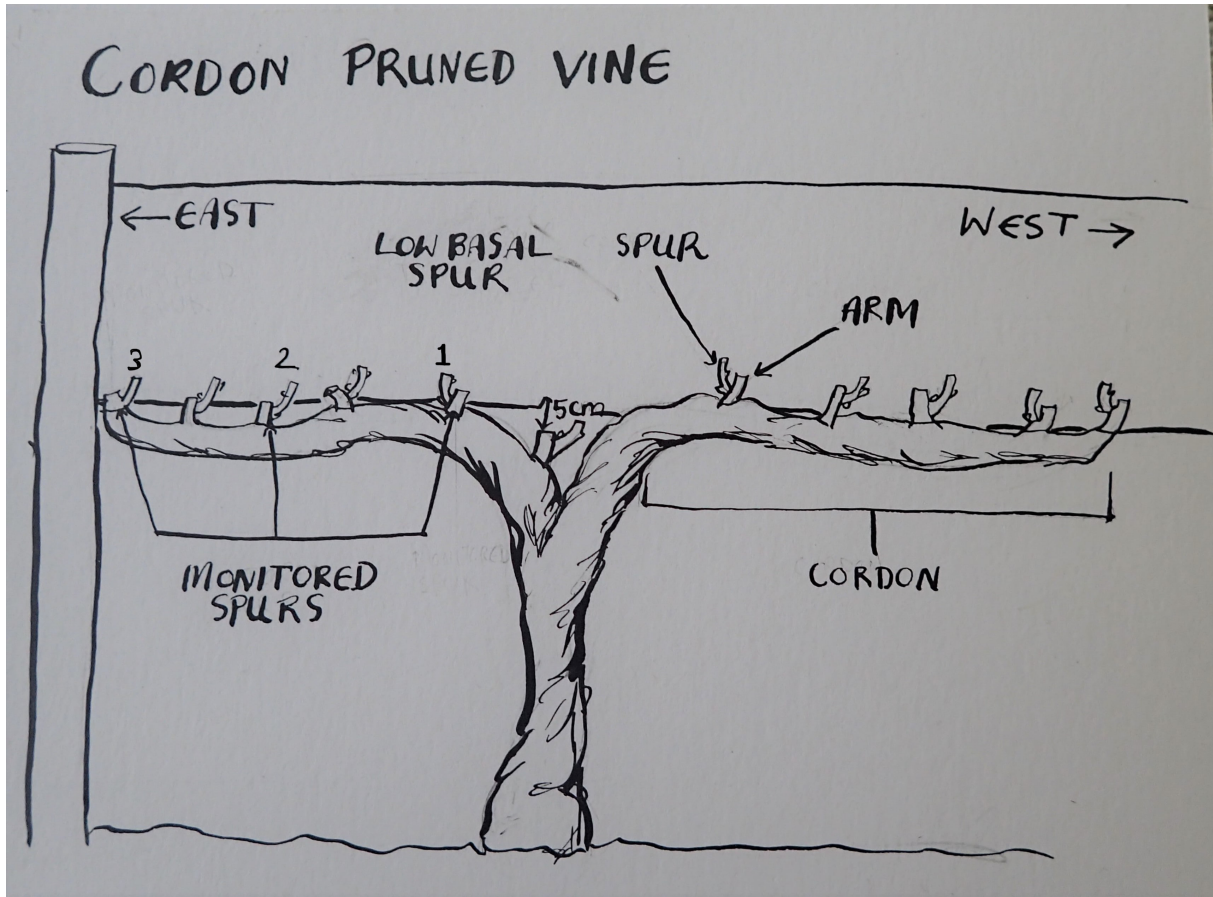 CORDON PRUNED VINE
← EAST
WEST →
LOW BASAL
SPUR
SPUR
ARM
3
2
1
5cm
MONITORED
SPURS
CORDON